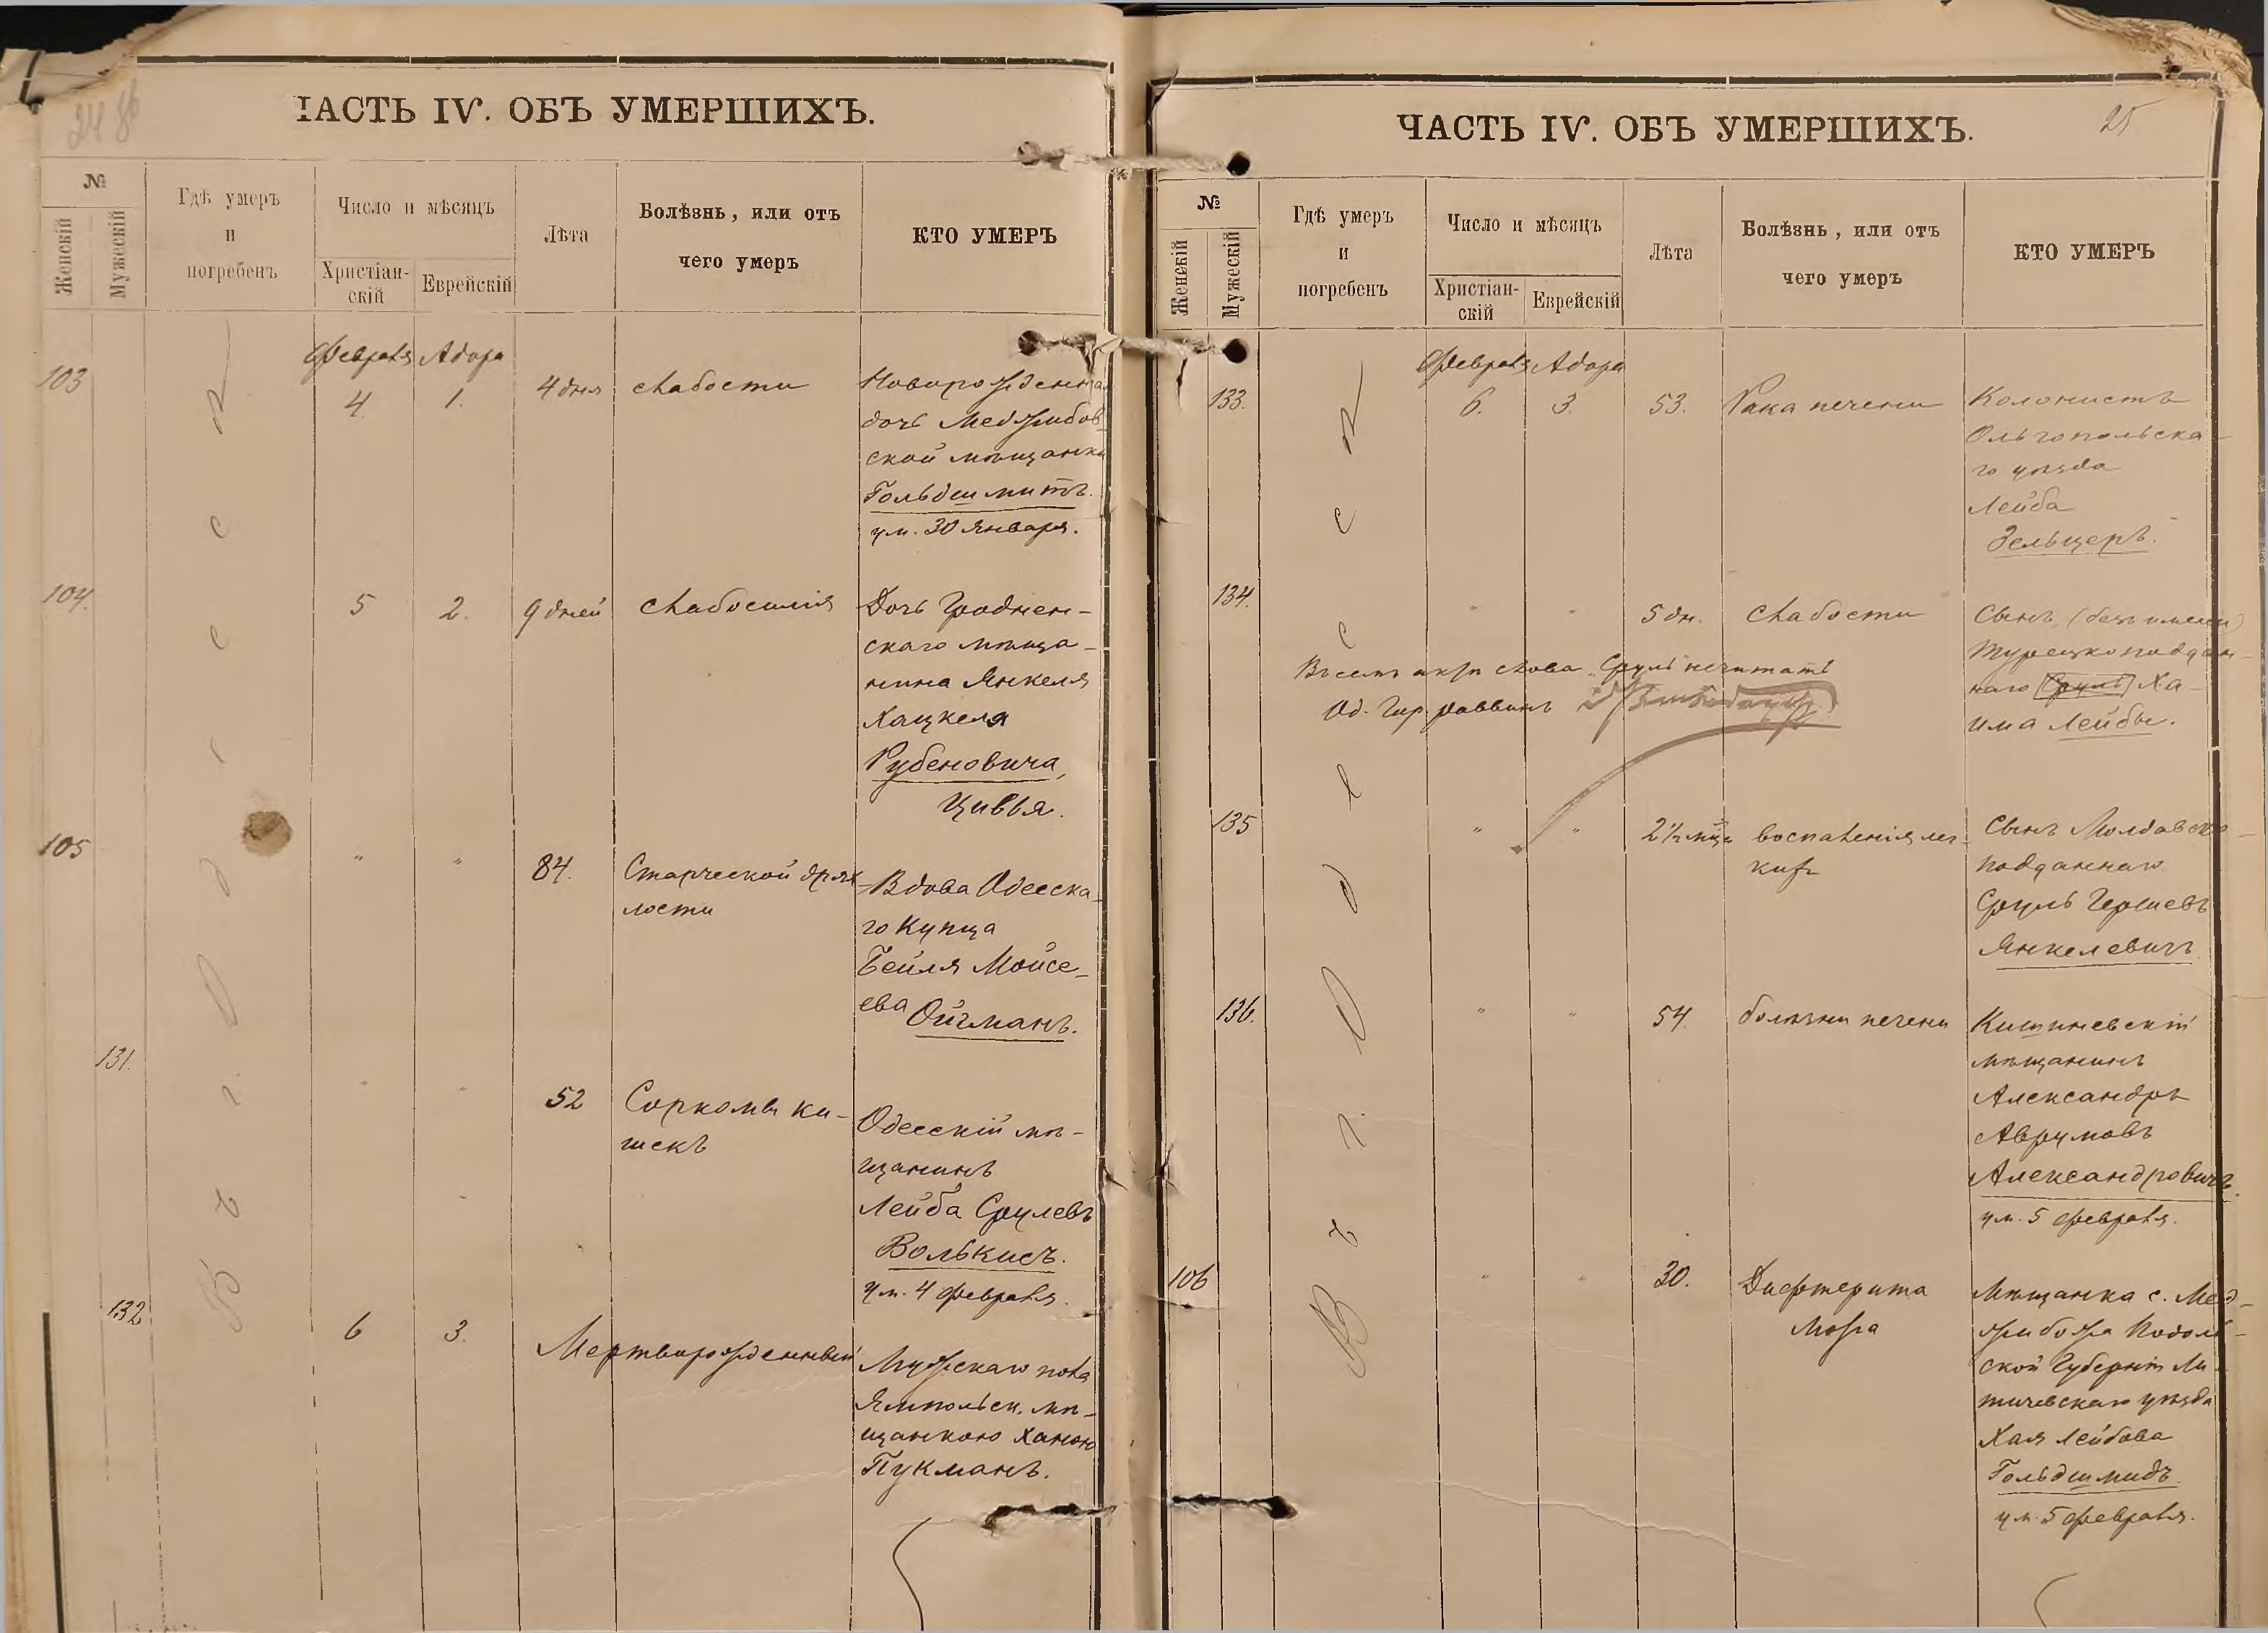 24 об
ЧАСТЬ IV. ОБЪ УМЕРШИХЪ.
№
Женскій
Мужескій
Гдѣ умеръ
и
погребенъ
Число и мѣсяцъ
Христіан-
скій
Еврейскій
Лѣта
Болѣзнь, или отъ
чего умеръ
КТО УМЕРЪ
Въ г. Одессѣ
Февраля Адара
103
4
1.
4 дня
слабости
Новорожденная
дочь Меджибов-
ской мѣщанки
Гольдшмитъ.
ум. 30 Января.
104.
5
2.
9 дней
слабосилія
Дочь Гроднен-
скаго мѣща-
нина Янкеля
Хацкеля
Рубеновича,
Цивья.
105
"
"
84.
Старческой дрях-
лости
Вдова Одесска-
го Купца
Бейля Мойсе-
ева Ойгманъ.
131.
"
"
52
Саркомы ки-
шекъ
Одесскій мѣ-
щанинъ
Лейба Срулевъ
Волькисъ.
ум. 4 февраля.
132
6
3.
Мертворожденный
Мужскаго пола
Ямпольск. мѣ-
щанкою Ханою
Пукманъ.
25
ЧАСТЬ IV. ОБЪ УМЕРШИХЪ.
№
Женскій
Мужескій
Гдѣ умеръ
и
погребенъ
Число и мѣсяцъ
Христіан-
скій
Еврейскій
Лѣта
Болѣзнь, или отъ
чего умеръ
КТО УМЕРЪ
Въ г. Одессѣ
Февраля Адара
133.
6.
3.
53.
Рака печени
Колонистъ
Ольгопольска-
го уѣзда
Лейба
Зельцеръ.
134.
"
"
5 дн.
слабости
Сынъ (безъ имени)
Турецкоподдан-
наго Сруль Ха-
има Лейбы.
Въ семъ актѣ слова "Сруль" не читать
Од. Гор. раввинъ
135
"
"
2½ мѣц.
воспаленія лег-
кихъ
Сынъ Молдавско-
подданнаго
Сруль Гершевъ
Янкелевичъ
136.
"
"
54.
болѣзни печени
Кишиневскій
мѣщанинъ
Александръ
Аврумовъ
Александровичъ.
ум. 5 февраля.
106
"
"
30.
Дифтерита
Мѣщанка с. Мед-
жибожа Подоль-
ской Губерніи Ли-
тичевскаго уѣзда
Хая Лейбова
Гольдшмидъ
ум. 5 февраля.